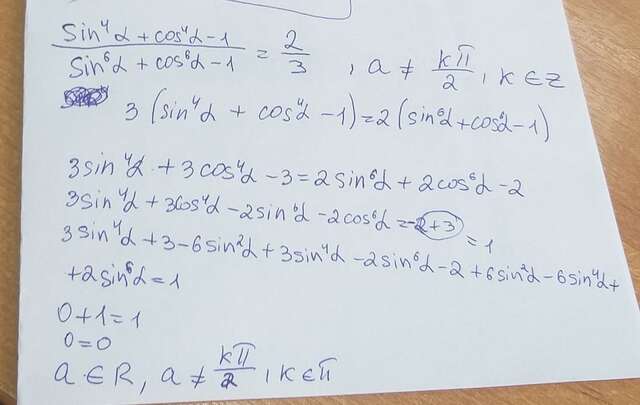 (sin⁴α + cos⁴α - 1) / (sin⁶α + cos⁶α - 1) = 2/3 , a ≠ kπ/2 , k ∈ z
3 (sin⁴α + cos⁴α - 1) = 2 (sin⁶α + cos⁶α - 1)
3sin⁴α + 3cos⁴α - 3 = 2sin⁶α + 2cos⁶α - 2
3sin⁴α + 3cos⁴α - 2sin⁶α - 2cos⁶α = -2+3 = 1
3sin⁴α + 3 - 6sin²α + 3sin⁴α - 2sin⁶α - 2 + 6sin²α - 6sin⁴α +
+ 2sin⁶α = 1
0 + 1 = 1
0 = 0
a ∈ R, a ≠ kπ/2 , k ∈ π